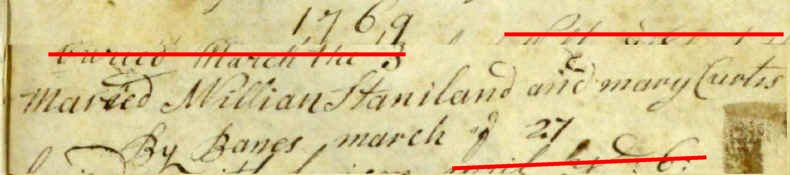 1769
buried March the 3
Maried Willian Staniland and mary Curtis
By Banes march ye 27